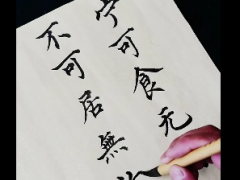 宁可食无
不可居無